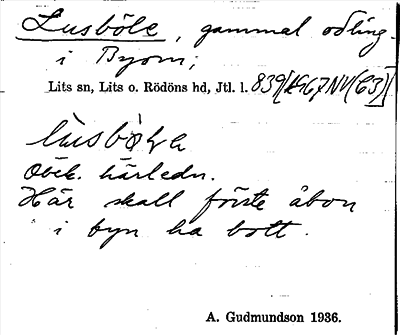 Lusböle, gammal odling
i Byom;
Lits sn, Lits o. Rödöns hd, Jtl. l. 839
lusbøla
Obek. härledn.
Här skall förste åbon
i byn ha bott.
A. Gudmundson 1936.